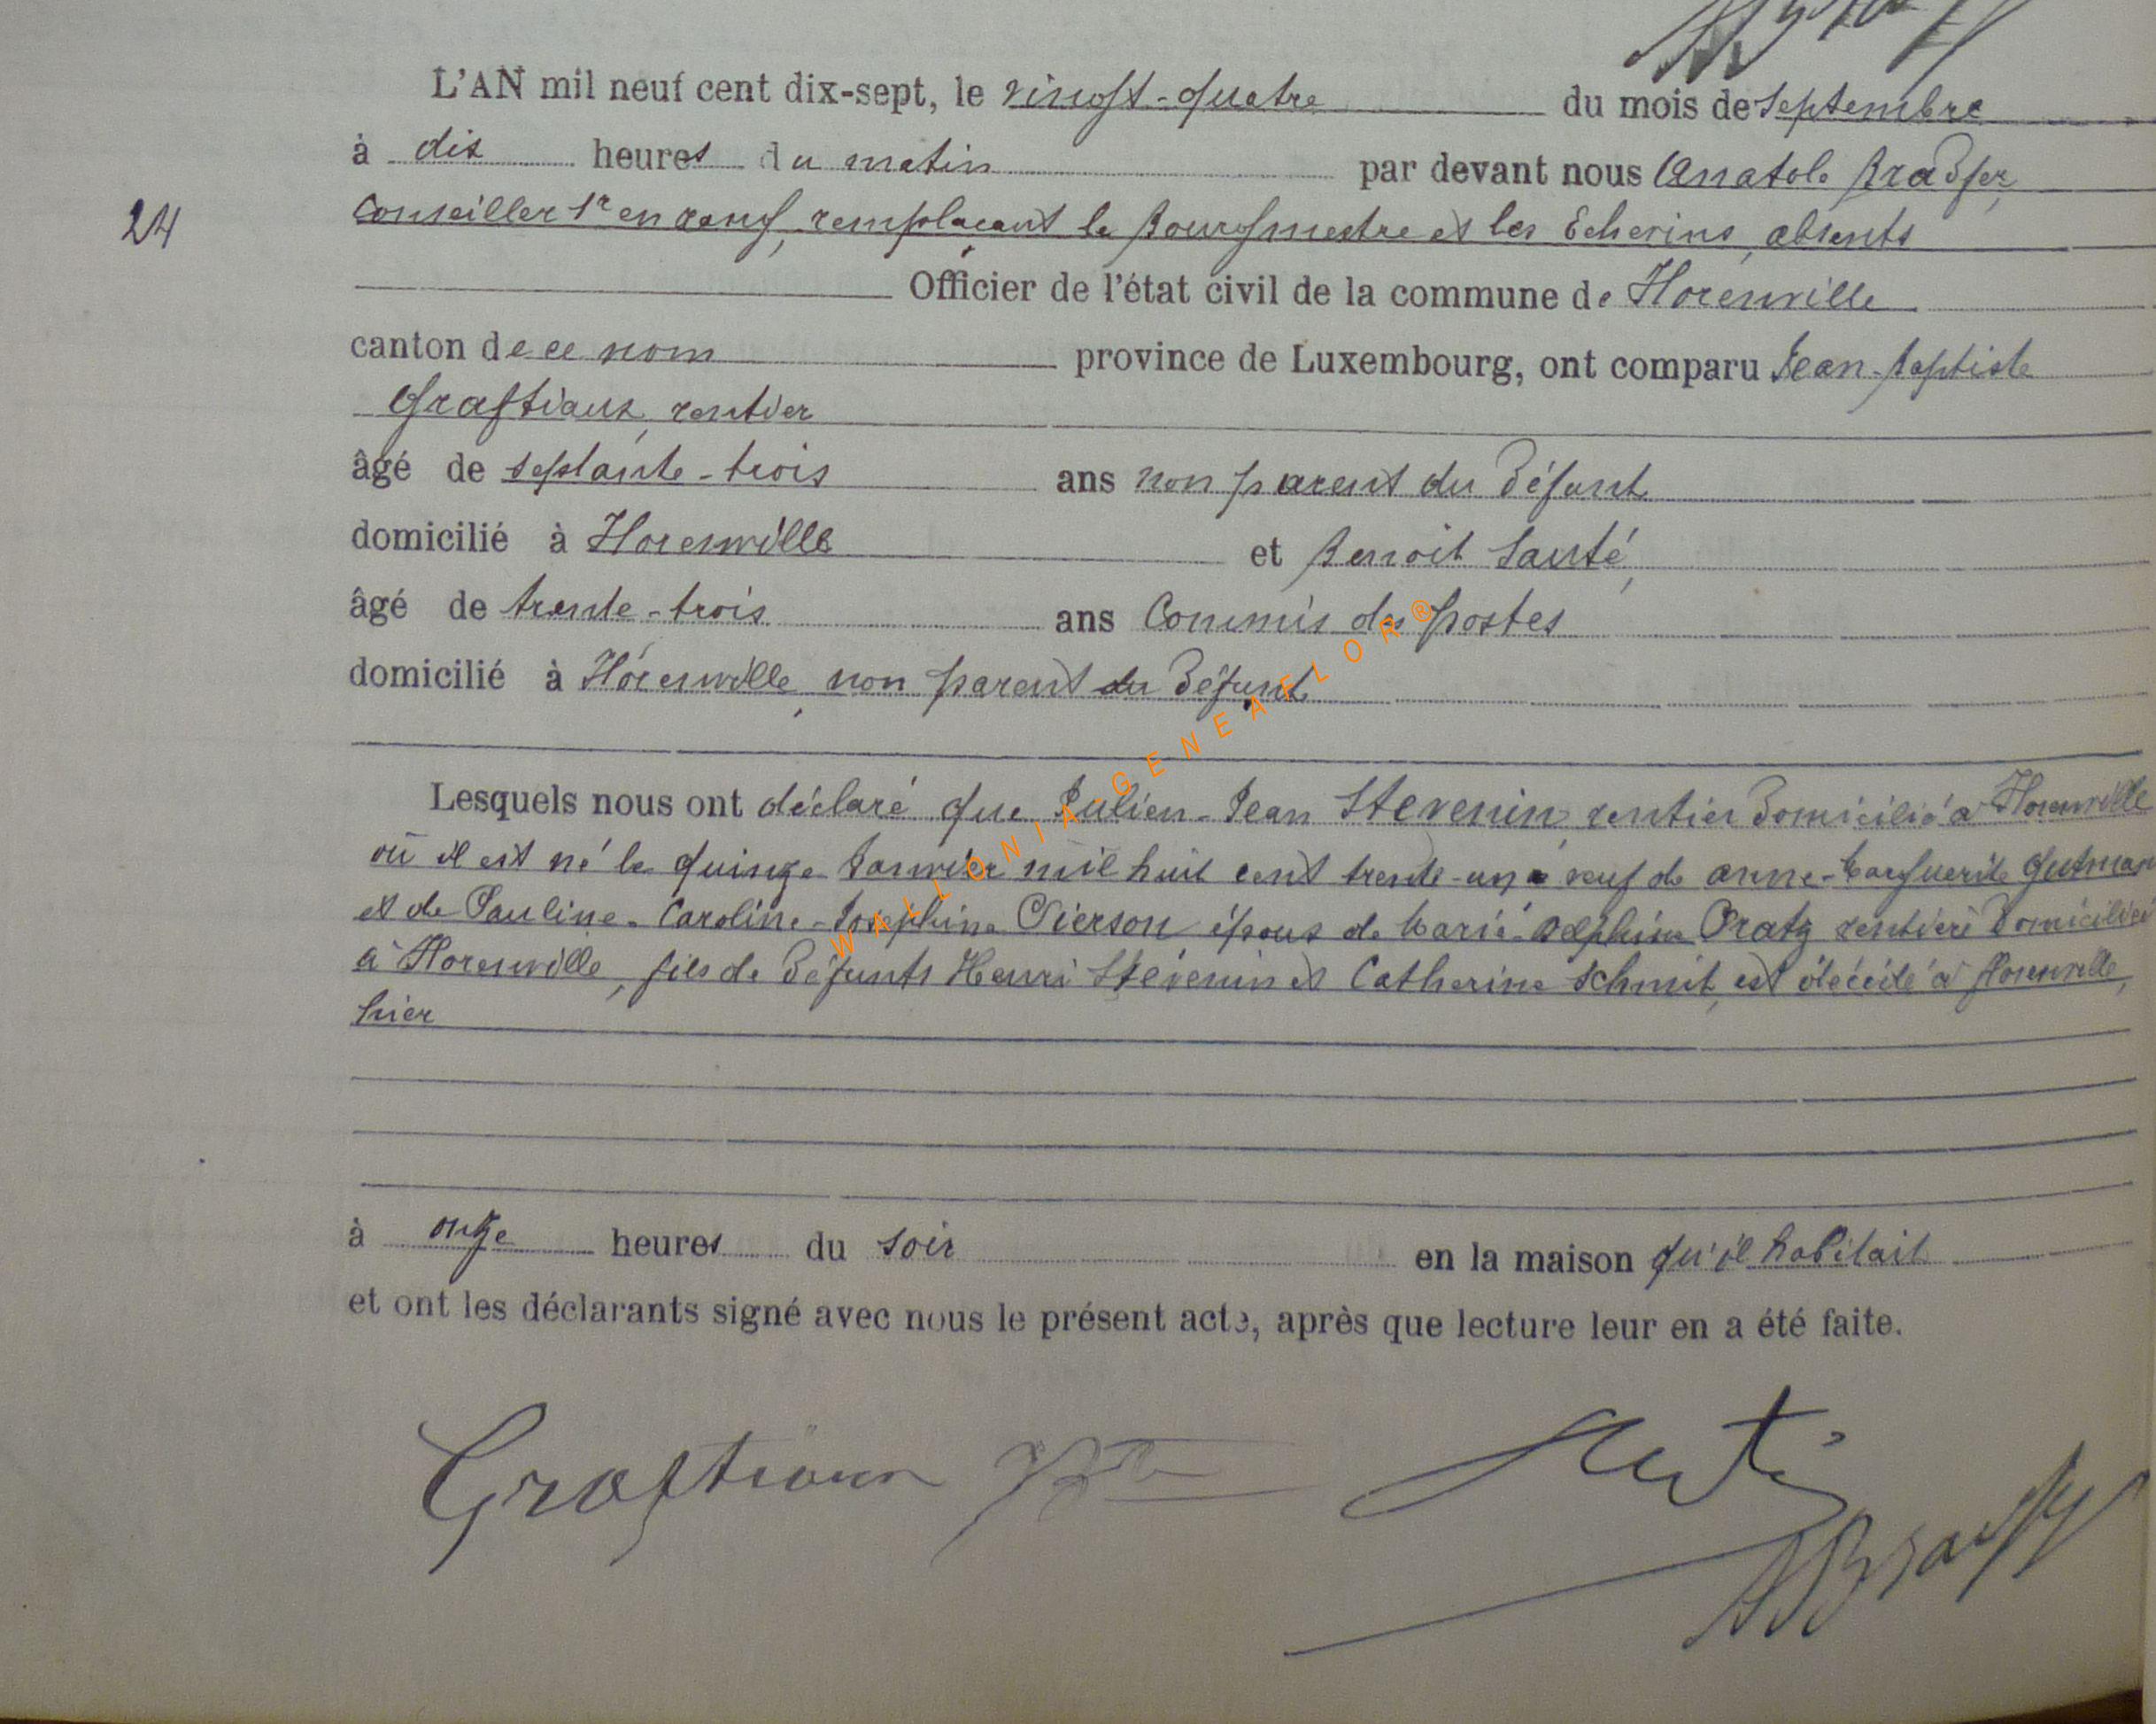 L'AN mil neuf cent dix-sept, le vingt-quatre du mois de septembre
à dix heures du matin par devant nous Anatole Bradfer,
24
Conseiller 1r en rang, remplaçant le Bourgmestre et les Echevins, absents
Officier de l'état civil de la commune de Florenville
canton de ce nom province de Luxembourg, ont comparu Jean-Baptiste
Graftiaux, rentier
âgé de septante-trois ans non parent du défunt
domicilié à Florenville et Benoit Santé,
âgé de trente-trois ans Commis des postes
domicilié à Florenville, non parent du défunt
Lesquels nous ont déclaré que Julien-Jean Stevenin, rentier domicilié à Florenville
où il est né le quinze Janvier mil huit cent trente-un, veuf de Anne-Marguerite Gutman
et de Pauline-Caroline-Josephine Pierson, épous de Marie-Delphine Pratz rentière domiciliée
à Florenville, fils de défunts Henri Stévenin et Catherine Schmit, est décédé à Florenville,
hier
à onze heures du soir en la maison qu'il habitait
et ont les déclarants signé avec nous le présent acte, après que lecture leur en a été faite.
Graftiaux Jbte
ABradfer
WALLONIA-GENEAFLOR®